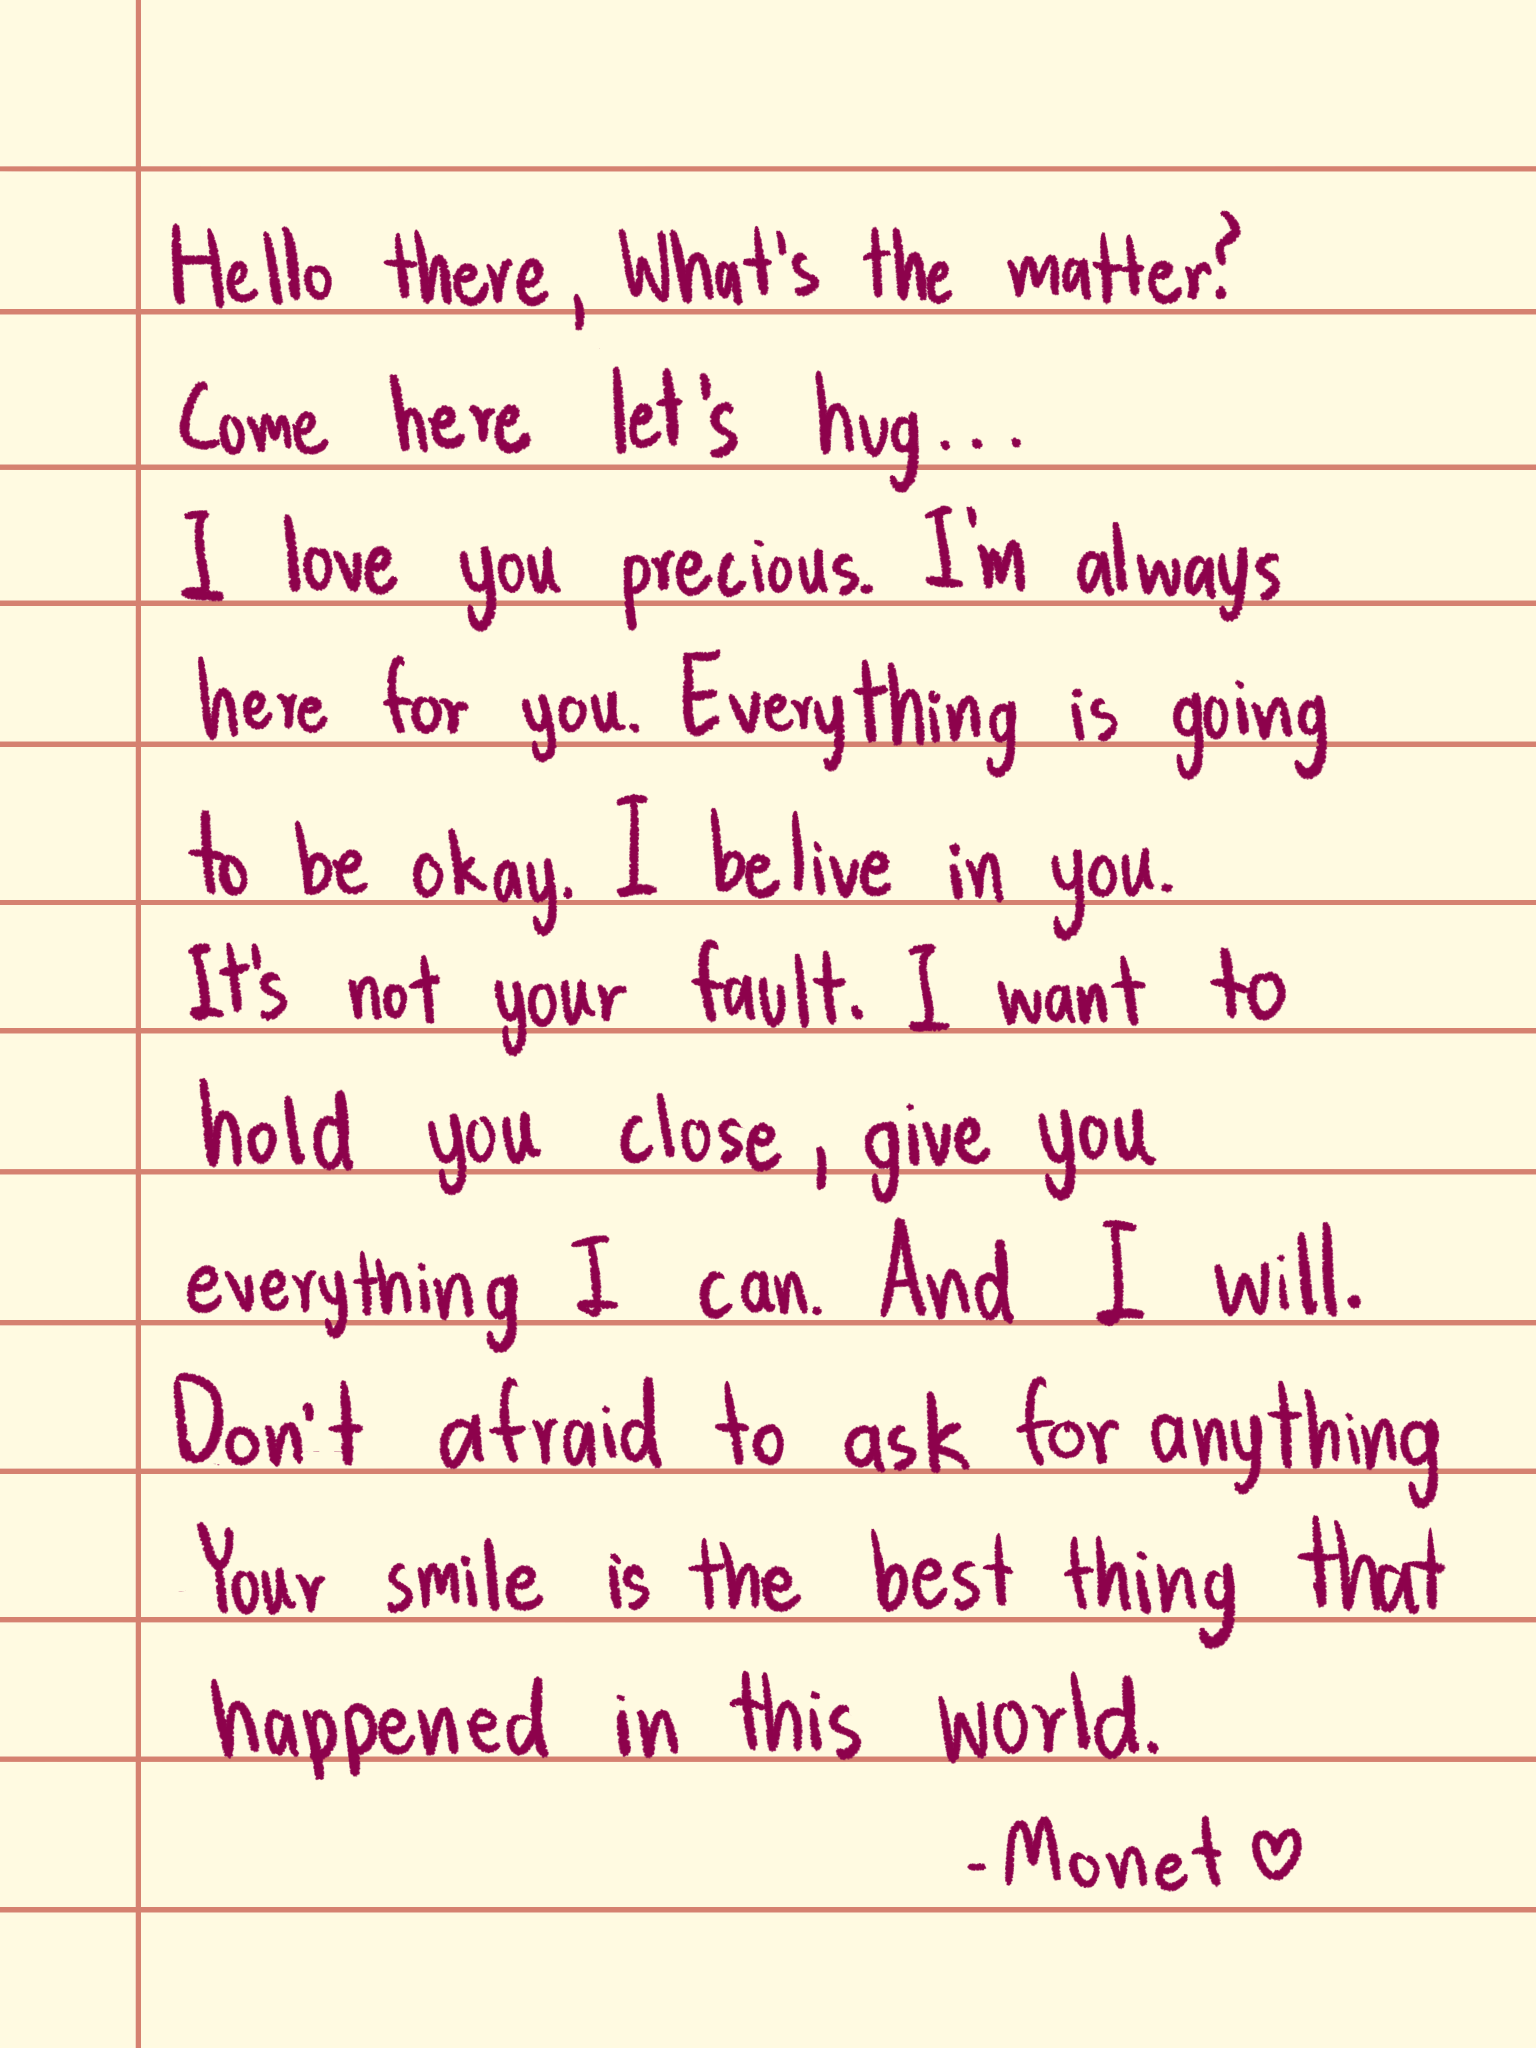 Hello there, What's the matter?
Come here let's hug...
I love you precious. I'm always
here for you. Everything is going
to be okay. I belive in you.
It's not your fault. I want to
hold you close, give you
everything I can. And I will.
Don't afraid to ask for anything
Your smile is the best thing that
happened in this world.
-Monet ♡